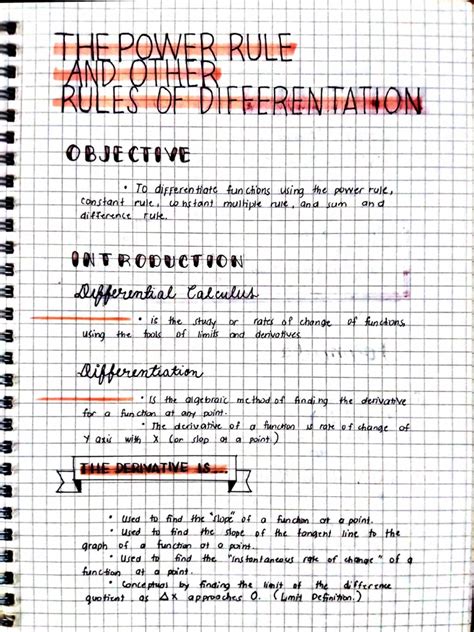 THE POWER RULE
AND OTHER
RULES OF DIFFERENTATION
OBJECTIVE
• To differentiate functions using the power rule,
constant rule, constant multiple rule, and sum and
difference rule.
INTRODUCTION
Differential Calculus
• is the study or rates of change of functions
using the tools of limits and derivatives
Differentiation
• Is the algebraic method of finding the derivative
for a function at any point.
• The derivative of a function is rate of change of
Y axis with X (or slop at a point)
THE DERIVATIVE IS...
• Used to find the "slope" of a function at a point.
• Used to find the slope of the tangent line to the
graph of a function at a point.
• Used to find the "instantaneous rate of change" of a
function at a point.
• Conceptuas by finding the limit of the difference
quotient as Δx approaches 0. (Limit Definition.)